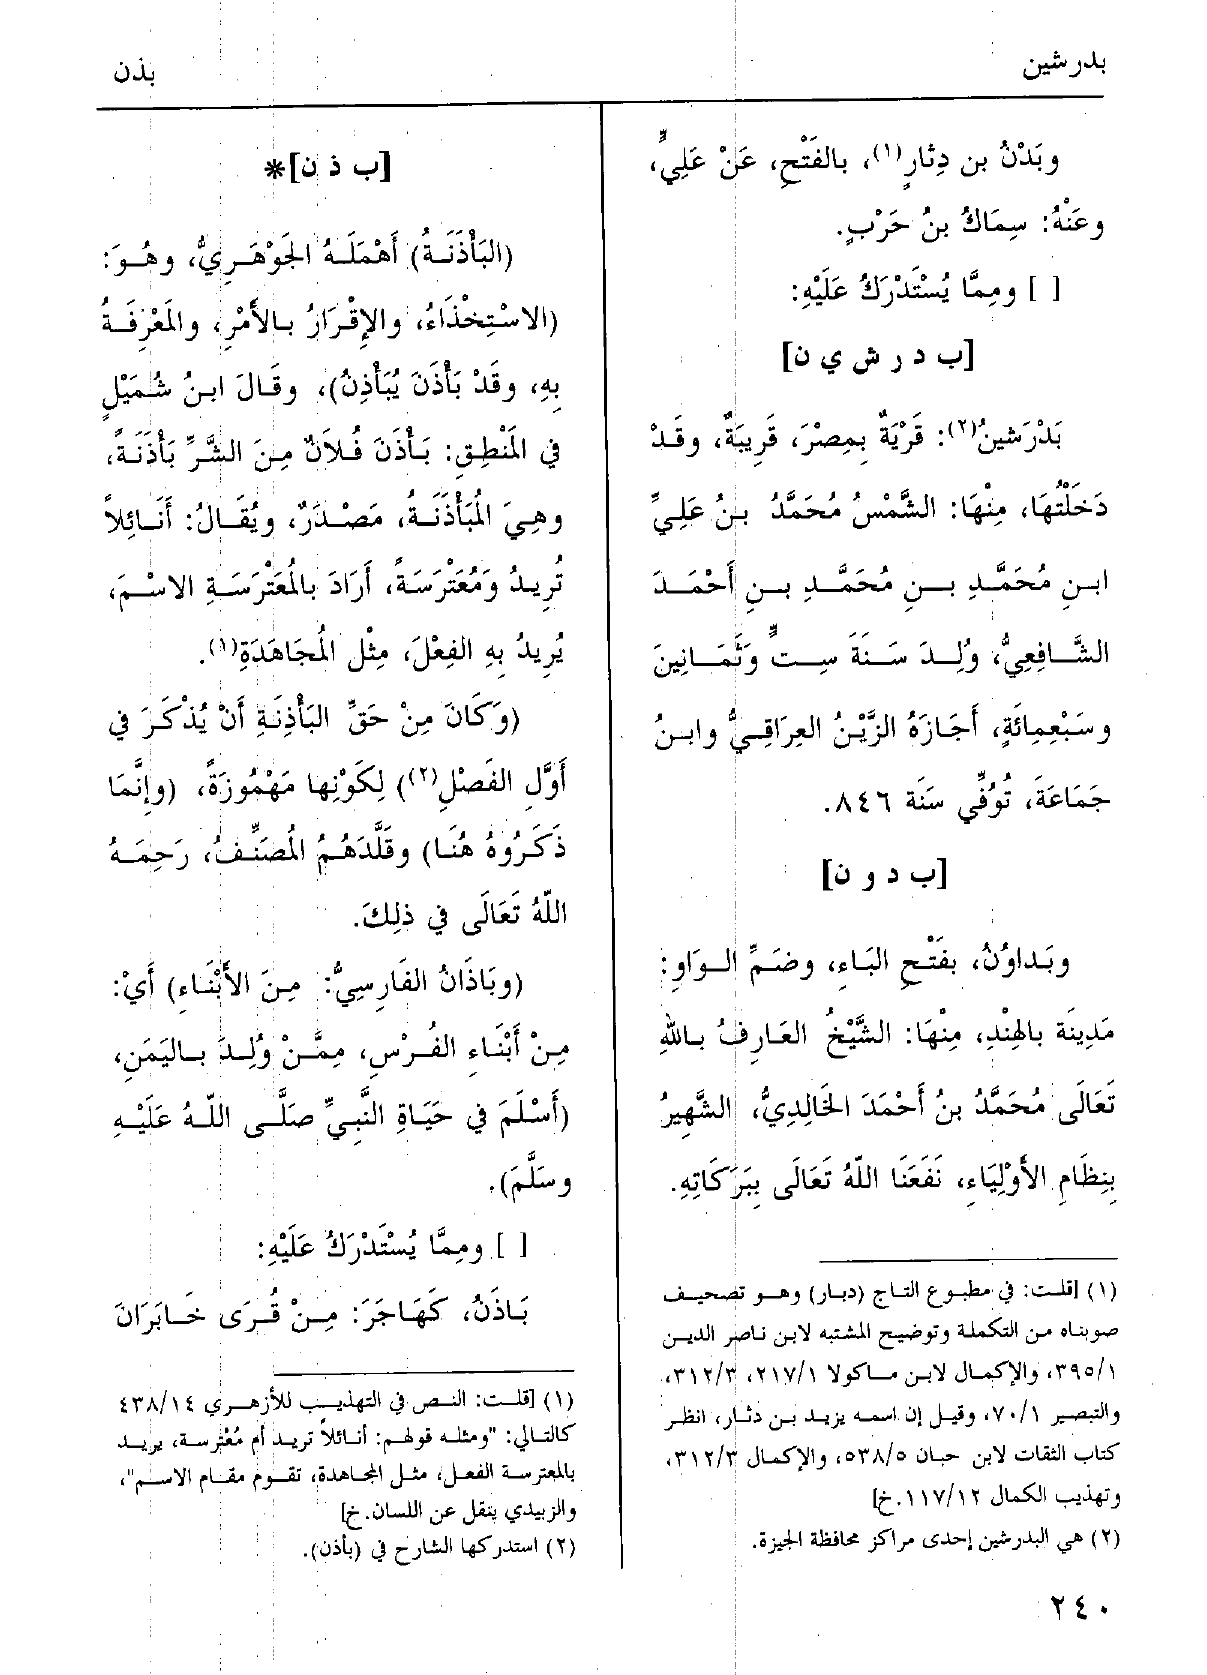 بدرشين
بذن
وبَدْنُ بن دِثارٍ(١)، بالفَتْحِ، عَنْ عَلِيٍّ،
وعَنْهُ: سِمَاكُ بنُ حَرْبٍ.
[ ] ومِمَّا يُسْتَدْرَكُ عَلَيْهِ:
[ب د ر ش ي ن]
بَدْرَشينُ(٢): قَرْيَةٌ بِمِصْرَ، قَرِيبَةٌ، وقَدْ
دَخَلْتُهَا، مِنْهَا: الشَّمْسُ مُحَمَّدُ بنُ عَلِيِّ
ابنِ مُحَمَّدِ بنِ مُحَمَّدِ بنِ أَحْمَدَ
الشَّافِعِيُّ، وُلِدَ سَنَةَ سِتٍّ وَثَمَانِينَ
وسَبْعِمِائَةٍ، أَجَازَهُ الزَّيْنُ العِرَاقِيُّ وابنُ
جَمَاعَةَ، تُوُفِّي سَنَة ٨٤٦.
[ب د و ن]
وبَداوُنُ، بفَتْحِ البَاءِ، وضَمِّ الوَاوِ:
مَدِينَة بالهِنْدِ، مِنْهَا: الشَّيْخُ العَارِفُ بِاللهِ
تَعَالَى مُحَمَّدُ بنُ أَحْمَدَ الخَالِدِيُّ، الشَّهِيرُ
بِنِظَامِ الأَوْلِيَاءِ، نَفَعَنَا اللهُ تَعَالَى بِبَرَكَاتِهِ.
(١) [قلت: في مطبوع التاج (دبار) وهو تصحيف
صوبناه من التكملة وتوضيح المشتبه لابن ناصر الدين
٣٩٥/١، والإكمال لابن ماكولا ٢١٧/١، ٣١٢/٣،
والتبصير ٧٠/١، وقيل إن اسمه يزيد بن دثار، انظر
كتاب الثقات لابن حبان ٥٣٨/٥، والإكمال ٣١٢/٣،
وتهذيب الكمال ١١٧/١٢.خ]
(٢) هي البدرشين إحدى مراكز محافظة الجيزة.
[ب ذ ن]*
(البَأْذَنَةُ) أَهْمَلَهُ الجَوْهَرِيُّ، وهُوَ:
(الاسْتِخْذَاءُ، والإِقْرَارُ بالأَمْرِ، والمَعْرِفَةُ
بِهِ، وقَدْ بَأْذَنَ يُبَأْذِنُ)، وقَالَ ابنُ شُمَيْلٍ
في المَنْطِقِ: بَأْذَنَ فُلاَنٌ مِنَ الشَّرِّ بَأْذَنَةً،
وهِيَ المُبَأْذَنَةُ، مَصْدَرٌ، ويُقَالُ: أَنَائِلاً
تُرِيدُ وَمُعْتَرَسَةً، أَرَادَ بالمُعْتَرَسَةِ الاسْمَ،
يُرِيدُ بِهِ الفِعْلَ، مِثْل المُجَاهَدَةِ(١).
(وَكَانَ مِنْ حَقِّ البَأْذِنَةِ أَنْ يُذْكَرَ في
أَوَّلِ الفَصْلِ(٢)) لِكَوْنِها مَهْمُوزَةً، (وإِنَّمَا
ذَكَرُوهُ هُنَا) وقَلَّدَهُمُ المُصَنِّفُ، رَحِمَهُ
اللهُ تَعَالَى في ذلِكَ.
(وبَاذَانُ الفَارِسِيُّ: مِنَ الأَبْنَاءِ) أَيْ:
مِنْ أَبْنَاءِ الفُرْسِ، مِمَّنْ وُلِدَ باليَمَنِ،
(أَسْلَمَ في حَيَاةِ النَّبِيِّ صَلَّى اللهُ عَلَيْهِ
وسَلَّمَ).
[ ] ومِمَّا يُسْتَدْرَكُ عَلَيْهِ:
بَاذَنُ، كَهَاجَرَ: مِنْ قُرَى خَابَرَانَ
(١) [قلت: النص في التهذيب للأزهري ٤٣٨/١٤
كالتالي: "ومثله قولهم: أنائلاً تريد أم مُعْترسة، يريد
بالمعترسة الفعل، مثل المجاهدة، تقوم مقام الاسم"،
والزبيدي ينقل عن اللسان.خ]
(٢) استدركها الشارح في (بأذن).
٢٤٠